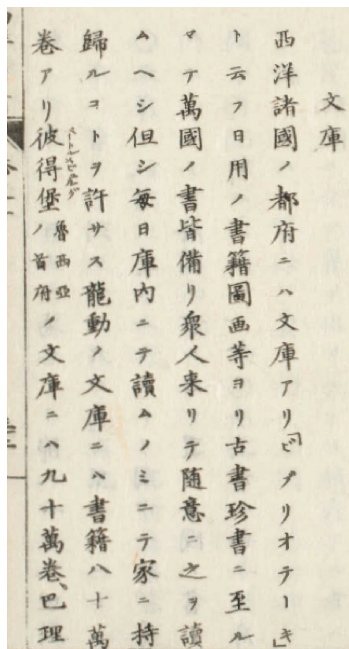 文庫
西洋諸國ノ都府ニハ文庫アリ「ビブリオテーキ」
ト云フ日用ノ書籍圖画等ヨリ古書珍書ニ至ル
マテ萬國ノ書皆備リ衆人来リテ随意ニ之ヲ讀
ムヘシ但シ毎日庫内ニテ讀ムノミニテ家ニ持
歸ルコトヲ許サス龍動ノ文庫ニハ書籍八十萬
卷アリ彼得堡魯西亞ノ首府ノ文庫ニハ九十萬卷、巴理